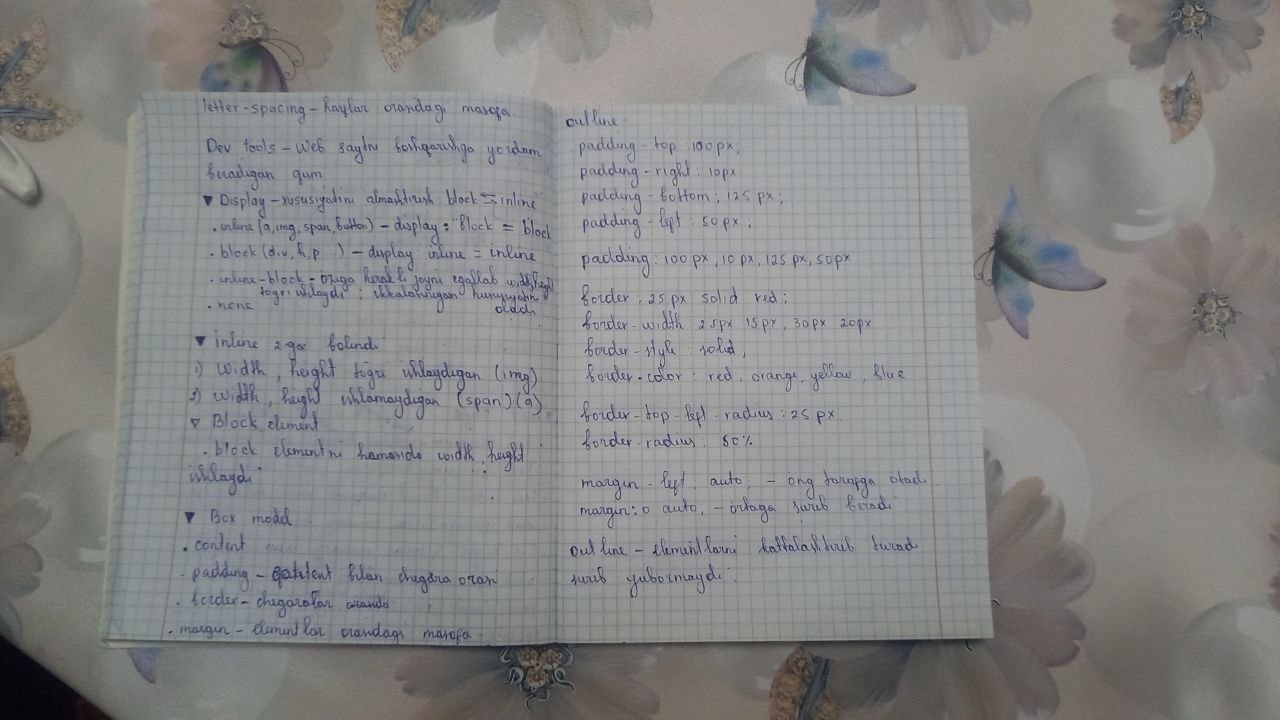 letter-spacing - harflar orasidagi masofa.
Dev tools - Web saytni boshqarishga yordam
beradigan qum
▼ Display - xususiyatini almashtirish block ⇆ inline
. inline (a, img, span, button) - display: "block = block
. block (div, h, p ...) - display inline = inline
. inline-block - oziga kerakli joyni egallab width, height
togri ishlaydi; ikkalasiningan hususiyatini
. none oladi
▼ inline 2 ga bolindi
1) width, height togri ishlaydigan (img)
2) width, height ishlamaydigan (span) (a)
▽ Block element
. block elementni hamasida width, height
ishlaydi
▼ Box model
. content
. padding - content bilan chegara orasi
. border - chegaralar orasida
. margin - elementlar orasidagi masofa.
outline
padding-top 100px;
padding-right: 10px
padding-bottom; 125 px;
padding-left: 50px;
padding: 100px, 10px, 125px, 50px
border: 25px solid red;
border-width 25px 15px, 30px 20px
border-style: solid,
border-color: red, orange, yellow, blue
border-top-left-radius: 25 px.
border-radius: 50%
margin-left, auto, - ong tarapga otadi
margin: 0 auto, - ortaga surib beradi
Outline - elementlarni kattalashtirib turadi
surib yubormaydi.